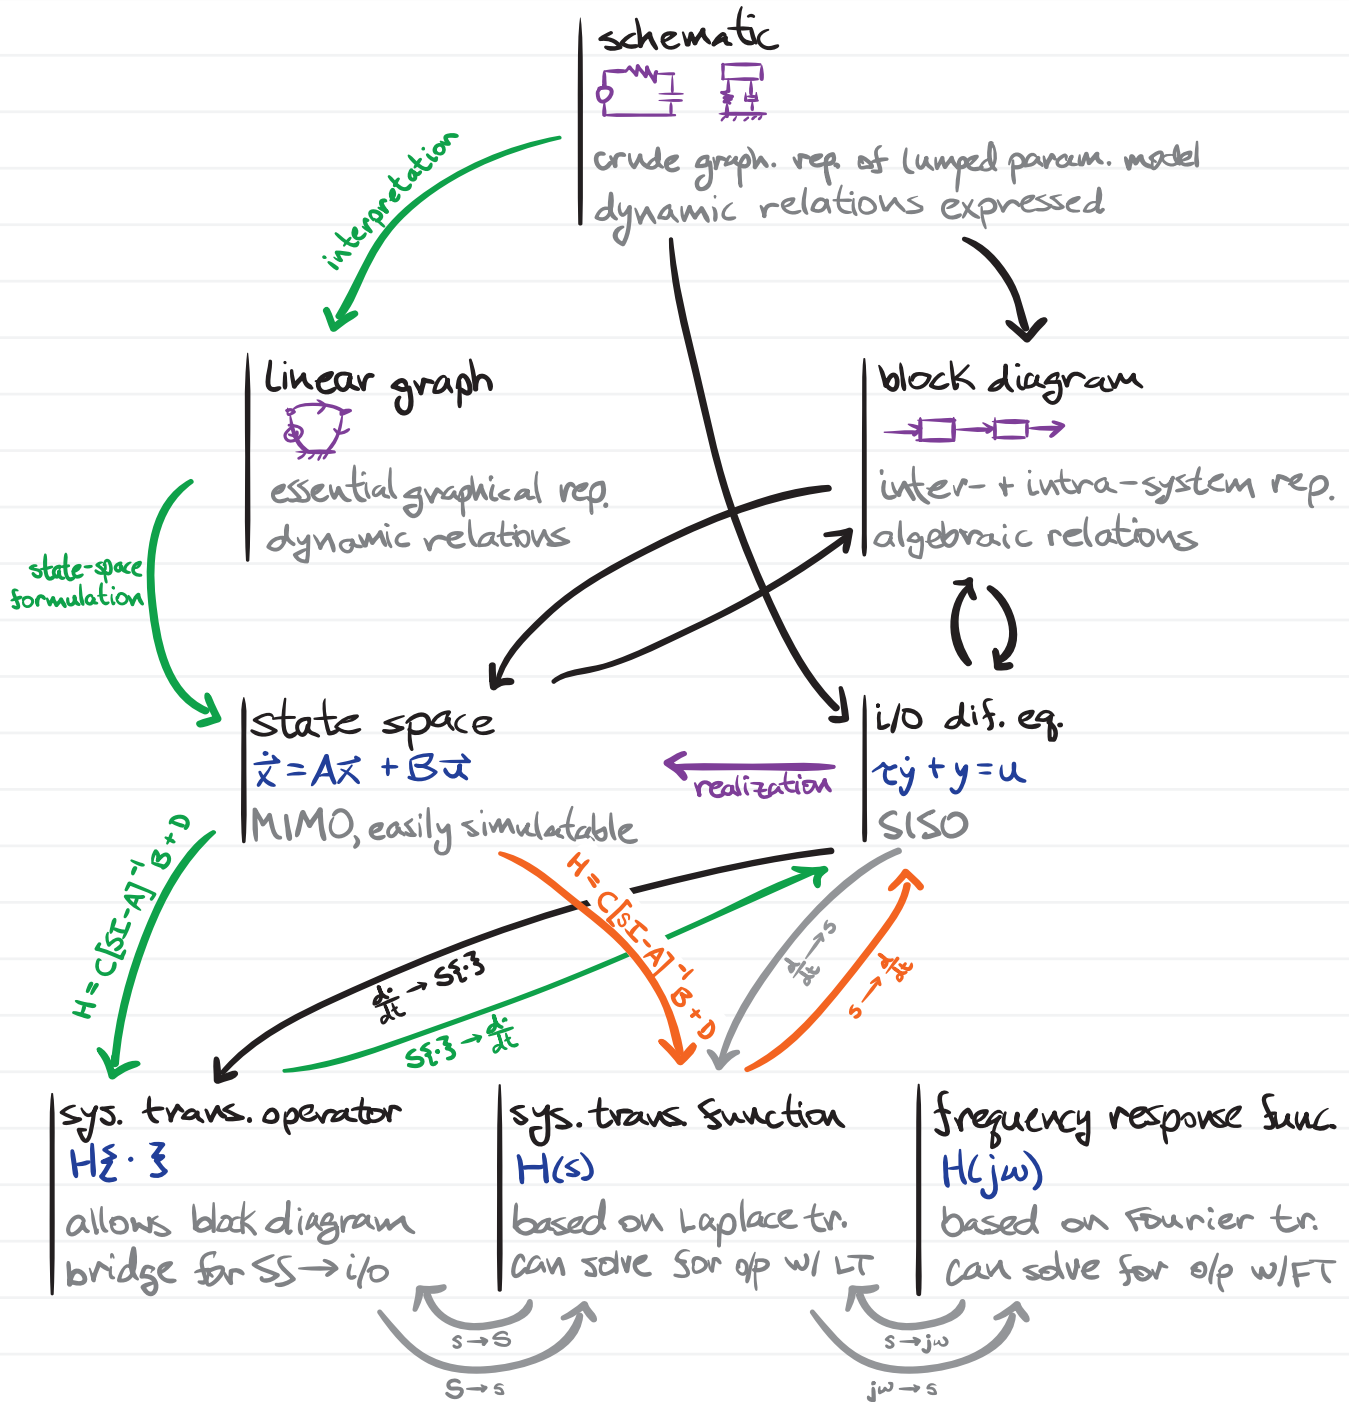 schematic
crude graph. rep. of lumped param. model
dynamic relations expressed
interpretation
linear graph
essential graphical rep.
dynamic relations
block diagram
inter- + intra-system rep.
algebraic relations
state-space
formulation
state space
ẋ⃗ = Ax⃗ + Bu⃗
MIMO, easily simulatable
realization
i/o dif. eq.
τẏ + y = u
SISO
H = C[SI-A]⁻¹ B + D
d·/dt → S{·}
S{·} → d·/dt
H = C[sI-A]⁻¹ B + D
d/dt → s
s → d/dt
sys. trans. operator
H{·}
allows block diagram
bridge for SS → i/o
sys. trans. function
H(s)
based on Laplace tr.
can solve for o/p w/ LT
frequency response func.
H(jω)
based on Fourier tr.
can solve for o/p w/FT
s → S
S → s
s → jω
jω → s